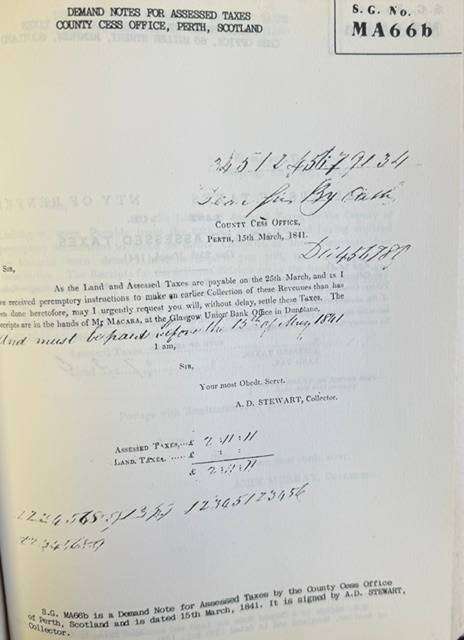 DEMAND NOTES FOR ASSESSED TAXES
COUNTY CESS OFFICE, PERTH, SCOTLAND
S.G. No.
MA66b
Dear Sir By Cash
COUNTY CESS OFFICE,
PERTH, 15th March, 1841.
SIR,
As the Land and Assessed Taxes are payable on the 25th March, and as I
ve received peremptory instructions to make an earlier Collection of these Revenues than has
en done heretofore, may I urgently request you will, without delay, settle these Taxes. The
ceipts are in the hands of Mr MACARA, at the Glasgow Union Bank Office in Dunblane.
And must be paid before the 15th of May 1841
I am,
SIR,
Your most Obedt. Servt.
A. D. STEWART, Collector.
ASSESSED TAXES,...£ 2:11:11
LAND TAXES. ......£
£ 2:11:11
12345123456
S.G. MA66b is a Demand Note for Assessed Taxes by the County Cess Office
of Perth, Scotland and is dated 15th March, 1841. It is signed by A.D. STEWART,
Collector.